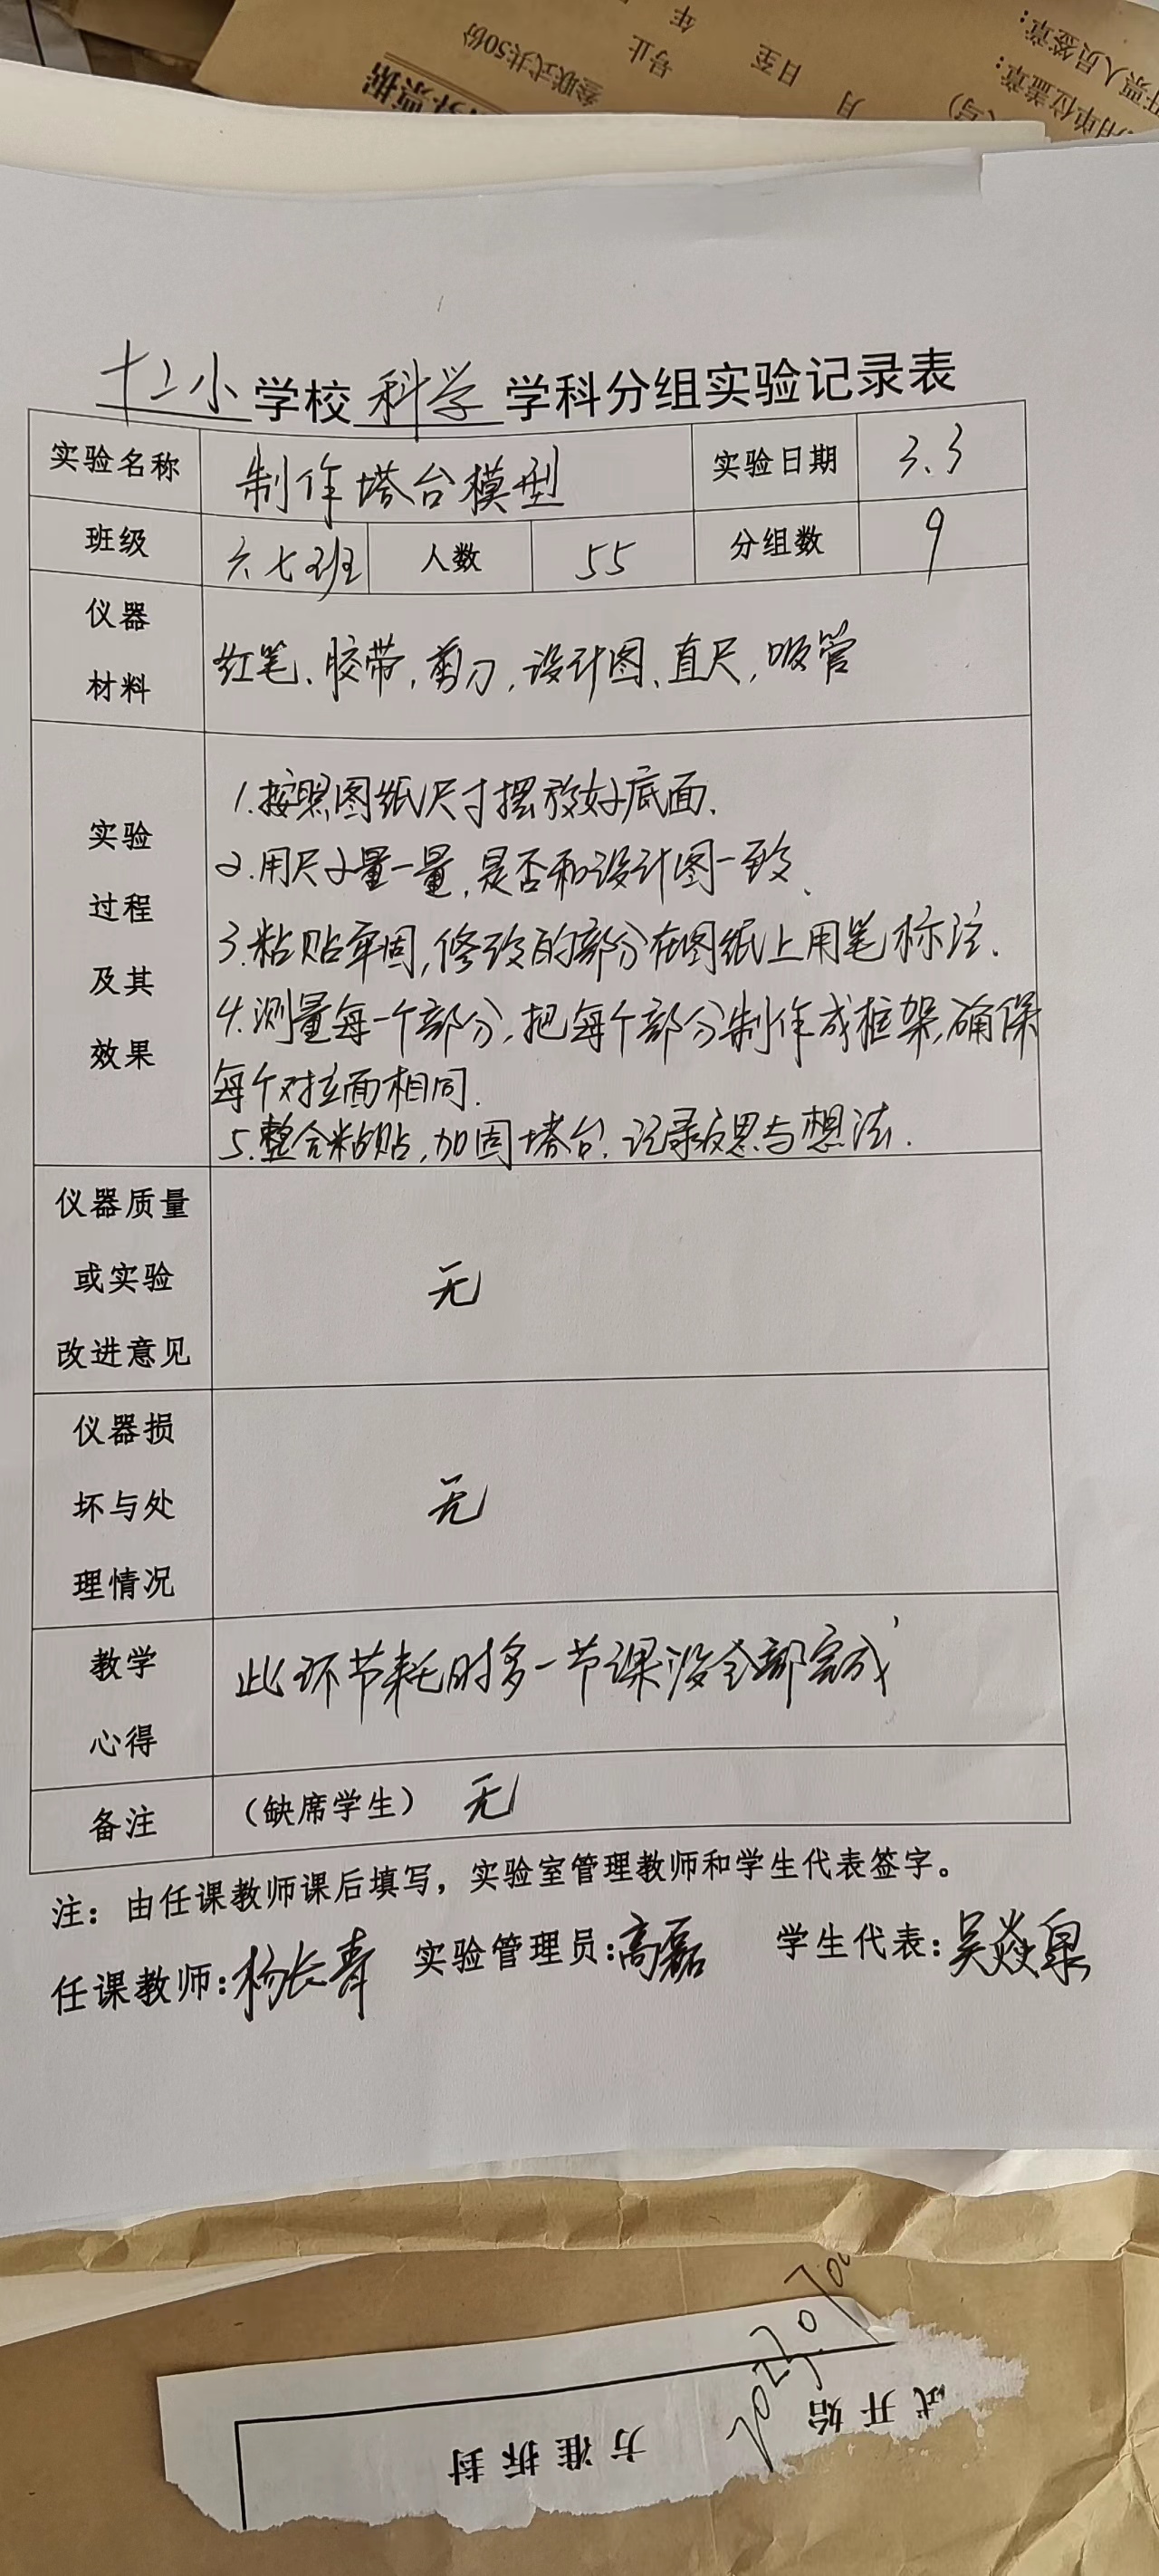 叁联式共50份
号止
年
日至
月
开票人员签章：
用单位盖章：
十二小学校科学学科分组实验记录表
实验名称 制作塔台模型 实验日期 3.3
班级 六七班 人数 55 分组数 9
仪器
材料
红笔、胶带,剪刀,设计图、直尺,吸管
实验
过程
及其
效果
1.按照图纸尺寸摆放好底面.
2.用尺子量一量,是否和设计图一致、
3.粘贴牢固,修改的部分在图纸上用笔标注.
4.测量每一个部分,把每个部分制作成框架,确保
每个对立面相同.
5.整合粘贴,加固塔台.记录反思与想法.
仪器质量
或实验
改进意见
无
仪器损
坏与处
理情况
无
教学
心得
此环节耗时多一节课没全部完成
备注 （缺席学生） 无
注：由任课教师课后填写，实验室管理教师和学生代表签字。
任课教师:杨长青 实验管理员:高磊 学生代表:吴焱泉
试开始
方准拆封